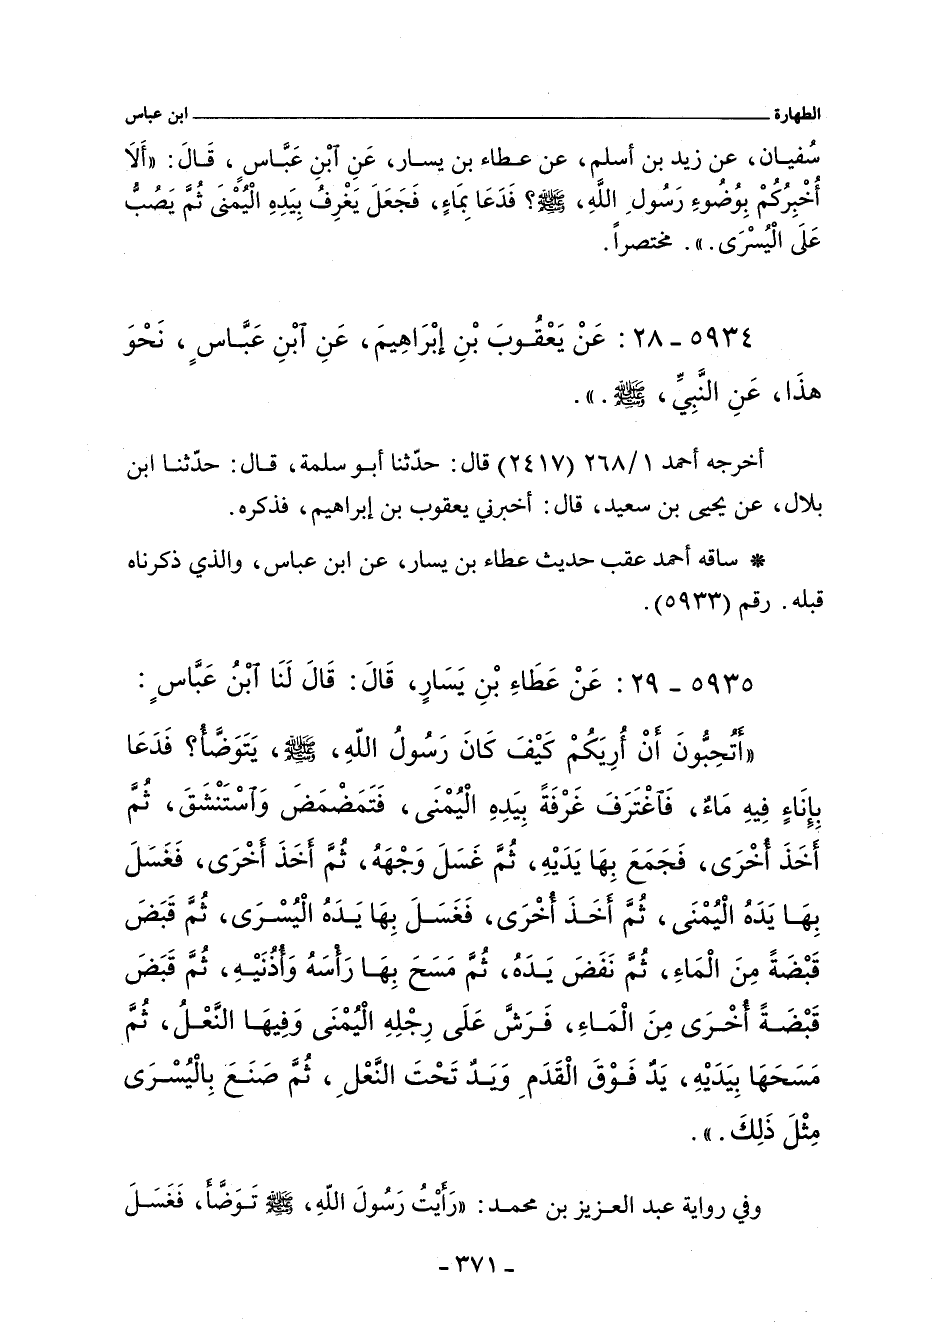 الطهارة ــــــــــــــــــــــــــــــــ ابن عباس
سُفيان، عن زيد بن أسلم، عن عطاء بن يسار، عَنِ ٱبْنِ عَبَّاسٍ، قَالَ: «أَلَا
أُخْبِرُكُمْ بِوُضُوءِ رَسُولِ اللَّهِ، ﷺ؟ فَدَعَا بِمَاءٍ، فَجَعَلَ يَغْرِفُ بِيَدِهِ الْيُمْنَى ثُمَّ يَصُبُّ
عَلَى الْيُسْرَى.». مختصراً.
٥٩٣٤ ـ ٢٨: عَنْ يَعْقُوبَ بْنِ إِبْرَاهِيمَ، عَنِ ٱبْنِ عَبَّاسٍ، نَحْوَ
هذَا، عَنِ النَّبِيِّ، ﷺ.».
أخرجه أحمد ٢٦٨/١ (٢٤١٧) قال: حدّثنا أبو سلمة، قال: حدّثنا ابن
بلال، عن يحيى بن سعيد، قال: أخبرني يعقوب بن إبراهيم، فذكره.
* ساقه أحمد عقب حديث عطاء بن يسار، عن ابن عباس، والذي ذكرناه
قبله. رقم (٥٩٣٣).
٥٩٣٥ ـ ٢٩: عَنْ عَطَاءِ بْنِ يَسَارٍ، قَالَ: قَالَ لَنَا ٱبْنُ عَبَّاسٍ:
«أَتُحِبُّونَ أَنْ أُرِيَكُمْ كَيْفَ كَانَ رَسُولُ اللّهِ، ﷺ، يَتَوَضَّأُ؟ فَدَعَا
بِإِنَاءٍ فِيهِ مَاءٌ، فَٱغْتَرَفَ غَرْفَةً بِيَدِهِ الْيُمْنَى، فَتَمَضْمَضَ وَٱسْتَنْشَقَ، ثُمَّ
أَخَذَ أُخْرَى، فَجَمَعَ بِهَا يَدَيْهِ، ثُمَّ غَسَلَ وَجْهَهُ، ثُمَّ أَخَذَ أُخْرَى، فَغَسَلَ
بِهَا يَدَهُ الْيُمْنَى، ثُمَّ أَخَذَ أُخْرَى، فَغَسَلَ بِهَا يَدَهُ الْيُسْرَى، ثُمَّ قَبَضَ
قَبْضَةً مِنَ الْمَاءِ، ثُمَّ نَفَضَ يَدَهُ، ثُمَّ مَسَحَ بِهَا رَأْسَهُ وَأُذُنَيْهِ، ثُمَّ قَبَضَ
قَبْضَةً أُخْرَى مِنَ الْمَاءِ، فَرَشَّ عَلَى رِجْلِهِ الْيُمْنَى وَفِيهَا النَّعْلُ، ثُمَّ
مَسَحَهَا بِيَدَيْهِ، يَدٌ فَوْقَ الْقَدَمِ وَيَدٌ تَحْتَ النَّعْلِ، ثُمَّ صَنَعَ بِالْيُسْرَى
مِثْلَ ذَلِكَ.».
وفي رواية عبد العزيز بن محمد: «رَأَيْتُ رَسُولَ اللّهِ، ﷺ تَوَضَّأَ، فَغَسَلَ
ـ ٣٧١ ـ